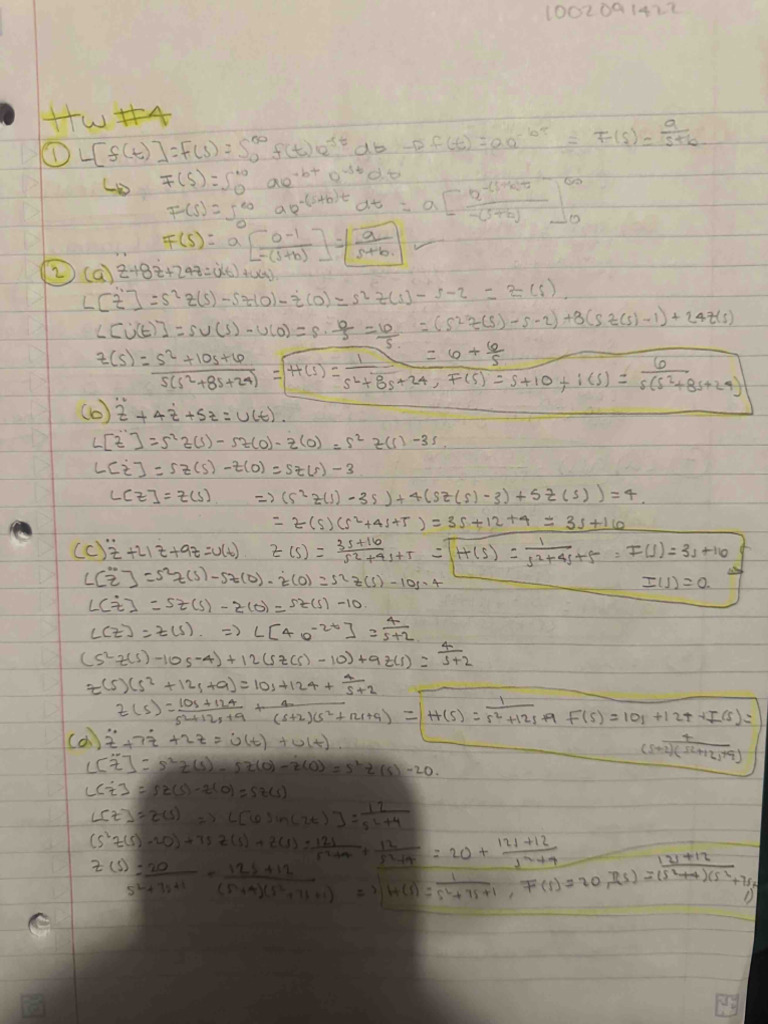 1002091422
HW #4
① L[f(t)]=F(s)=∫₀^∞ f(t)e^-st dt → f(t)=ae^-bt = F(s)= a/(s+b)
↳ F(s)=∫₀^∞ ae^-bt e^-st dt
F(s)=∫₀^∞ ae^-(s+b)t dt = a[e^-(s+b)t/-(s+b)]₀^∞
F(s)= a[0-1/-(s+b)]= a/(s+b) ✓
② (a) z̈+8ż+24z=u̇(t)+u(t).
L[z̈]=s²z(s)-sz(0)-ż(0)=s²z(s)-s-2 = z(s).
L[u̇(t)]=sU(s)-u(0)=s·6/s=6/s =(s²z(s)-s-2)+8(sz(s)-1)+24z(s)
= 6+6/s
z(s)= s²+10s+6/s(s²+8s+24) = H(s)= 1/(s²+8s+24), F(s)=s+10, I(s)= 6/s(s²+8s+24)
(b) z̈+4ż+5z=u(t).
L[z̈]=s²z(s)-sz(0)-ż(0)=s²z(s)-3s.
L[ż]=sz(s)-z(0)=sz(s)-3
L[z]=z(s). => (s²z(s)-3s)+4(sz(s)-3)+5z(s))=4.
= z(s)(s²+4s+5)=3s+12+4=3s+16
z(s)= 3s+16/s²+4s+5 = H(s)= 1/s²+4s+5, F(s)=3s+16
I(s)=0.
(c) z̈+21ż+9z=u(t)
L[z̈]=s²z(s)-sz(0)-ż(0)=s²z(s)-10s-4
L[ż]=sz(s)-z(0)=sz(s)-10.
L[z]=z(s). => L[4e^-2t]= 4/s+2
(s²z(s)-10s-4)+12(sz(s)-10)+9z(s)= 4/s+2
z(s)(s²+12s+9)=10s+124+ 4/s+2
z(s)= 10s+124/s²+12s+9 + 4/(s+2)(s²+12s+9) = H(s)= 1/s²+12s+9 F(s)=10s+124, I(s)= 4/(s+2)(s²+12s+9)
(d) z̈+7ż+2z=u̇(t)+u(t).
L[z̈]=s²z(s)-sz(0)-ż(0)=s²z(s)-20.
L[ż]=sz(s)-z(0)=sz(s)
L[z]=z(s) => L[6sin(2t)]= 12/s²+4
(s²z(s)-20)+7sz(s)+z(s)= 12s/s²+4 + 12/s²+4 = 20+ 12s+12/s²+4
z(s)= 20/s²+7s+1 + 12s+12/(s²+4)(s²+7s+1) => H(s)= 1/s²+7s+1, F(s)=20, I(s)= 12s+12/(s²+4)(s²+7s+1)